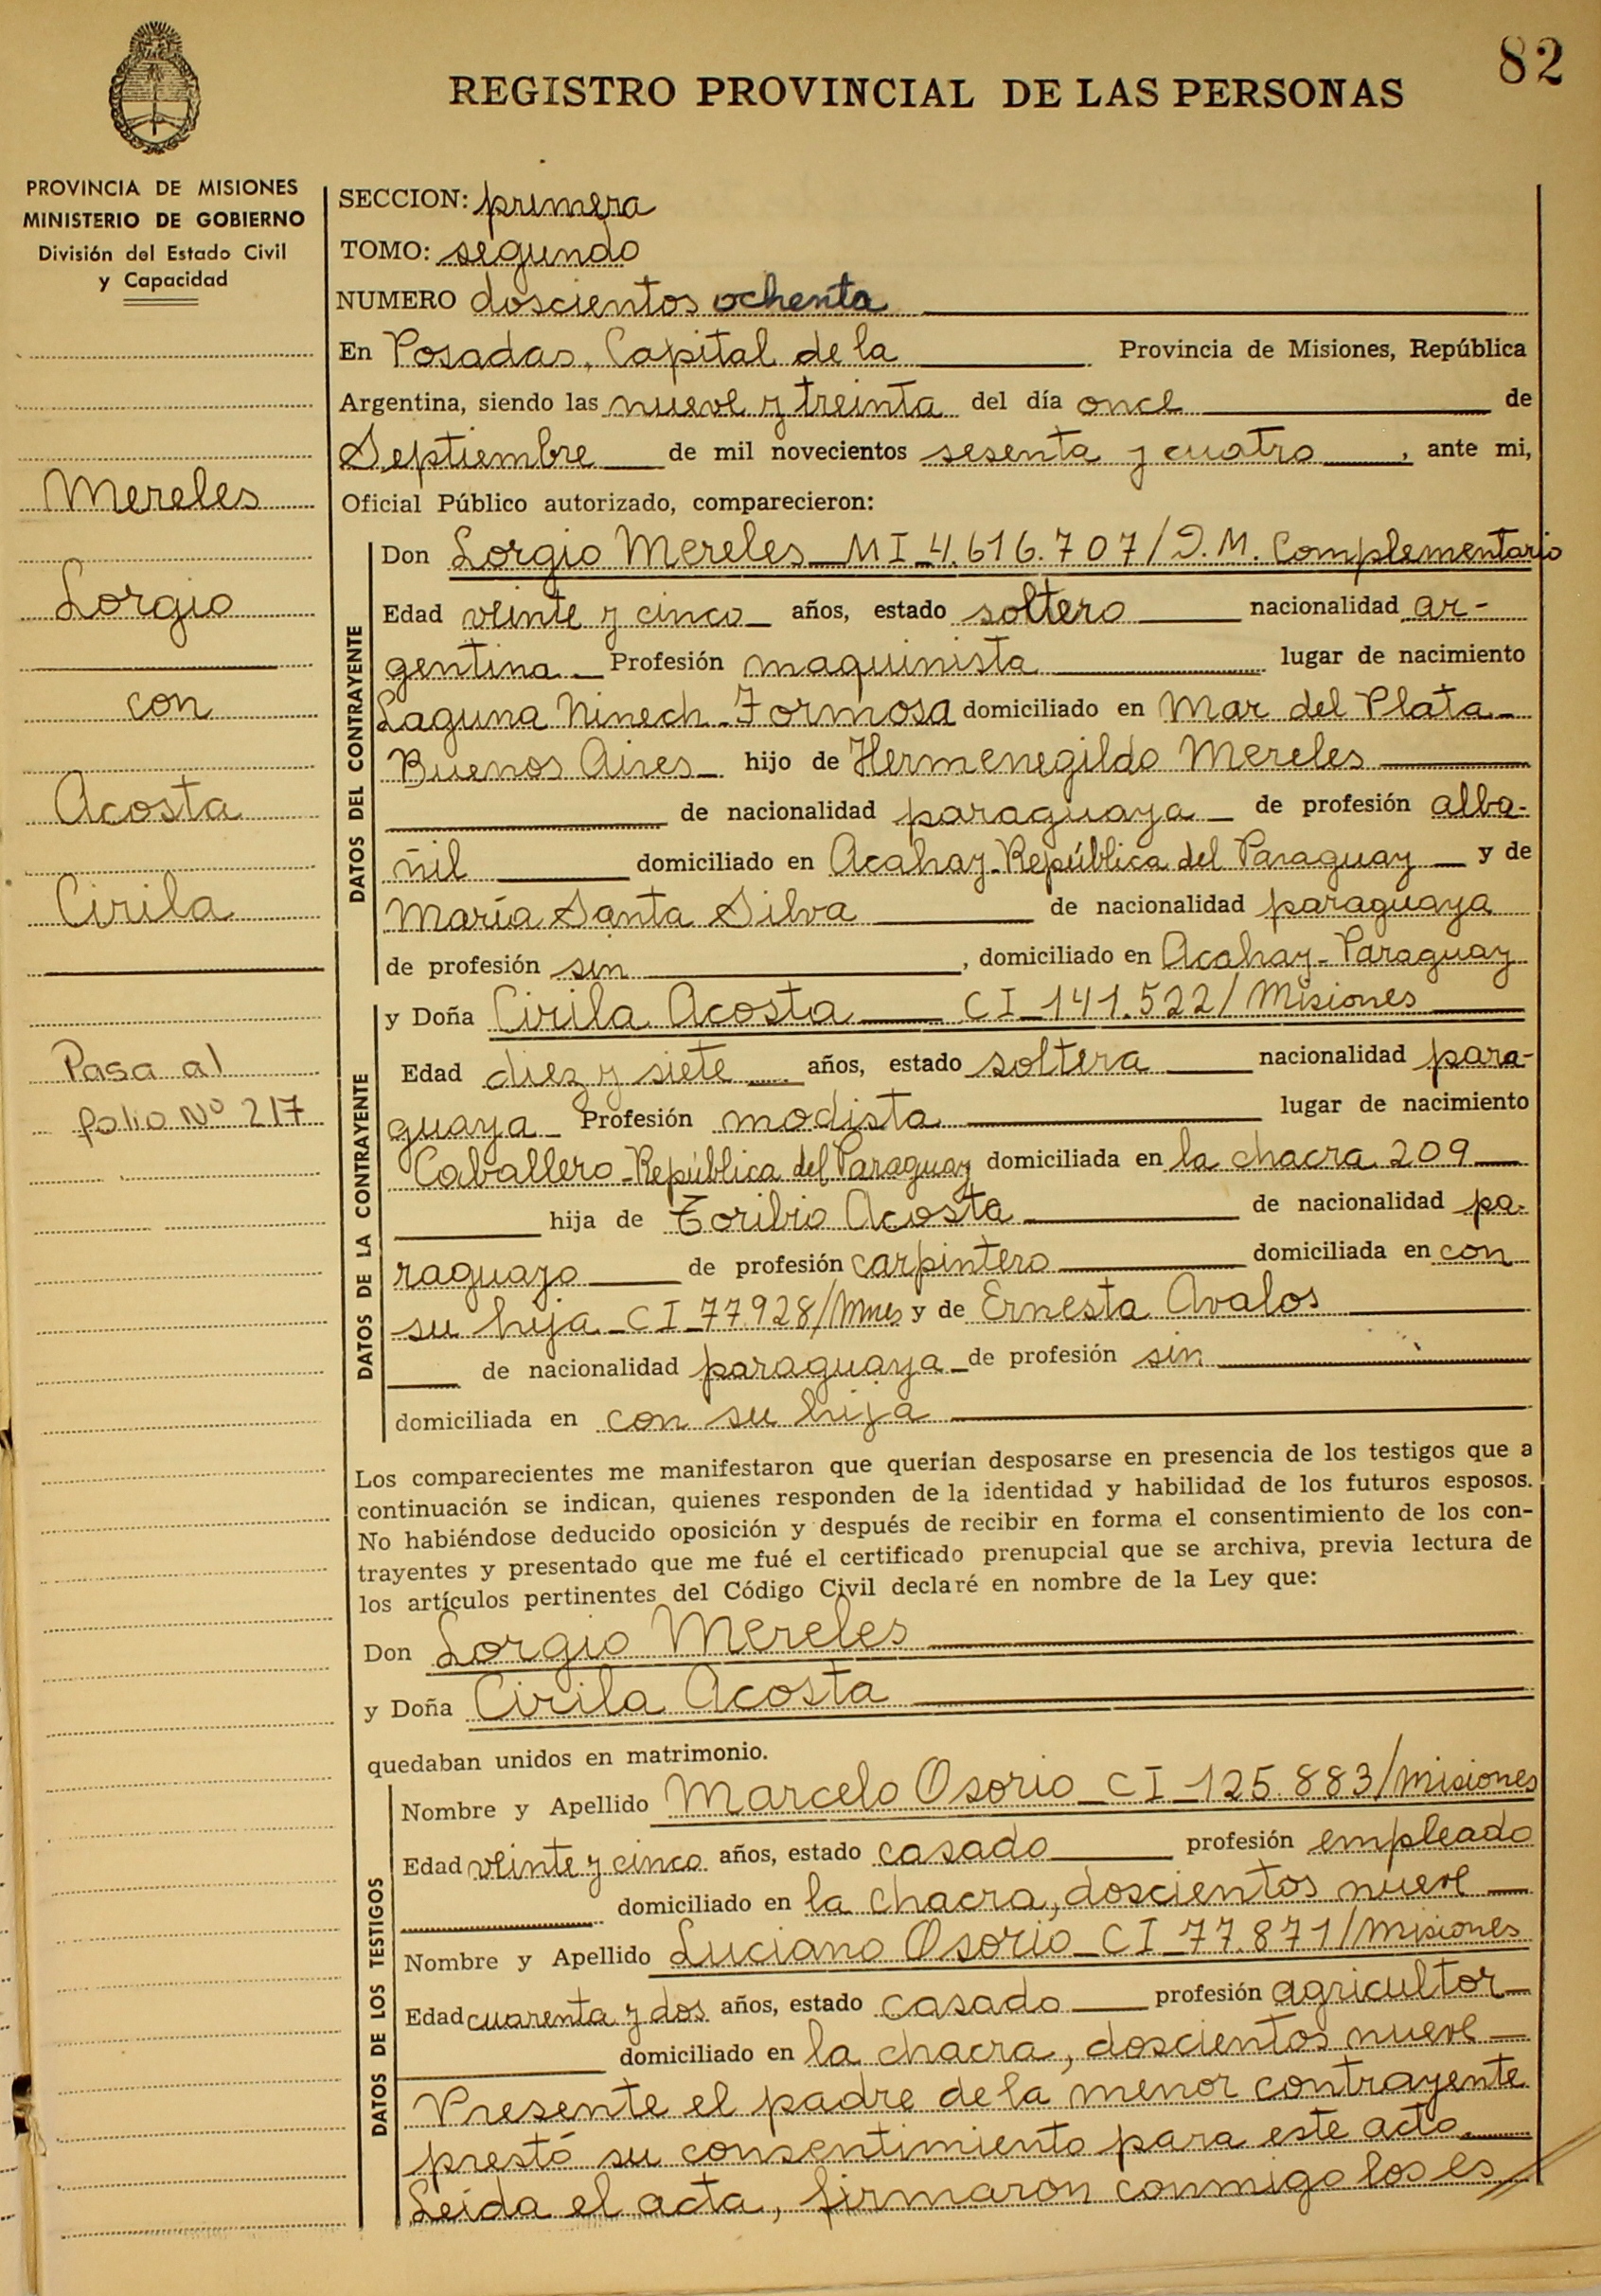 82
REGISTRO PROVINCIAL DE LAS PERSONAS
PROVINCIA DE MISIONES
MINISTERIO DE GOBIERNO
División del Estado Civil
y Capacidad
Mereles
Lorgio
con
Acosta
Cirila
Pasa al
folio Nº 217
SECCION: primera
TOMO: segundo
NUMERO doscientos ochenta
En Posadas, Capital de la Provincia de Misiones, República
Argentina, siendo las nueve y treinta del día once de
Septiembre de mil novecientos sesenta y cuatro, ante mi,
Oficial Público autorizado, comparecieron:
DATOS DEL CONTRAYENTE
Don Lorgio Mereles MI 4.616.707/D.M. Complementario
Edad veinte y cinco años, estado soltero nacionalidad ar-
gentina Profesión maquinista lugar de nacimiento
Laguna Ninech-Formosa domiciliado en Mar del Plata
Buenos Aires hijo de Hermenegildo Mereles
de nacionalidad paraguaya de profesión alba-
ñil domiciliado en Acahay-República del Paraguay y de
María Santa Silva de nacionalidad paraguaya
de profesión sin, domiciliado en Acahay-Paraguay
DATOS DE LA CONTRAYENTE
y Doña Cirila Acosta CI 141.522/Misiones
Edad diez y siete años, estado soltera nacionalidad para-
guaya Profesión modista lugar de nacimiento
Caballero-República del Paraguay domiciliada en la chacra 209
hija de Toribio Acosta de nacionalidad pa-
raguayo de profesión carpintero domiciliada en con
su hija CI 77.928/Mnes y de Ernesta Avalos
de nacionalidad paraguaya de profesión sin
domiciliada en con su hija
Los comparecientes me manifestaron que querían desposarse en presencia de los testigos que a
continuación se indican, quienes responden de la identidad y habilidad de los futuros esposos.
No habiéndose deducido oposición y después de recibir en forma el consentimiento de los con-
trayentes y presentado que me fué el certificado prenupcial que se archiva, previa lectura de
los artículos pertinentes del Código Civil declaré en nombre de la Ley que:
Don Lorgio Mereles
y Doña Cirila Acosta
quedaban unidos en matrimonio.
DATOS DE LOS TESTIGOS
Nombre y Apellido Marcelo Osorio CI 125.883/Misiones
Edad veinte y cinco años, estado casado profesión empleado
domiciliado en la chacra, doscientos nueve
Nombre y Apellido Luciano Osorio CI 77.871/Misiones
Edad cuarenta y dos años, estado casado profesión agricultor
domiciliado en la chacra, doscientos nueve
Presente el padre de la menor contrayente
prestó su consentimiento para este acto.
Leida el acta, firmaron conmigo los es